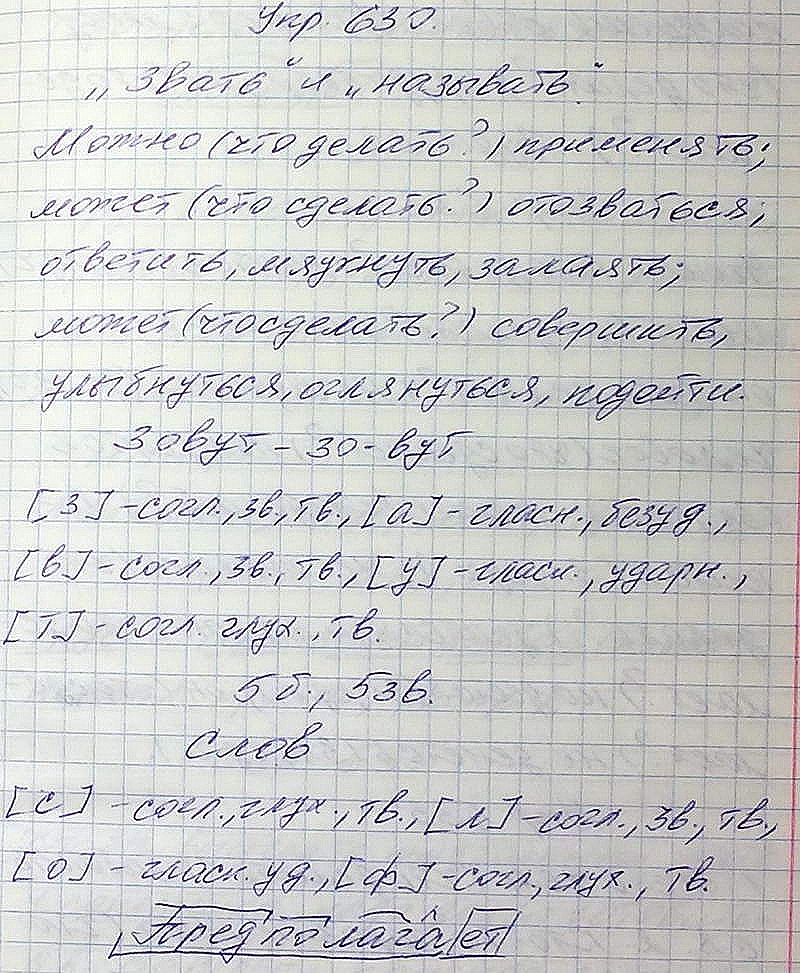 Упр. 630.
„Звать" и „называть."
Можно (что делать?) применять;
может (что сделать?) отозваться;
ответить, мяукнуть, залаять;
может (что сделать?) совершить,
улыбнуться, оглянуться, подойти.
Зовут - зо-вут
[з] - согл., зв., тв., [а] - гласн., безуд.,
[в] - согл., зв., тв., [у] - гласн., ударн.,
[т] - согл. глух., тв.
5 б., 5 зв.
Слов
[с] - согл., глух., тв., [л] - согл., зв., тв.,
[о] - гласн. уд., [ф] - согл., глух., тв.
Предполагает